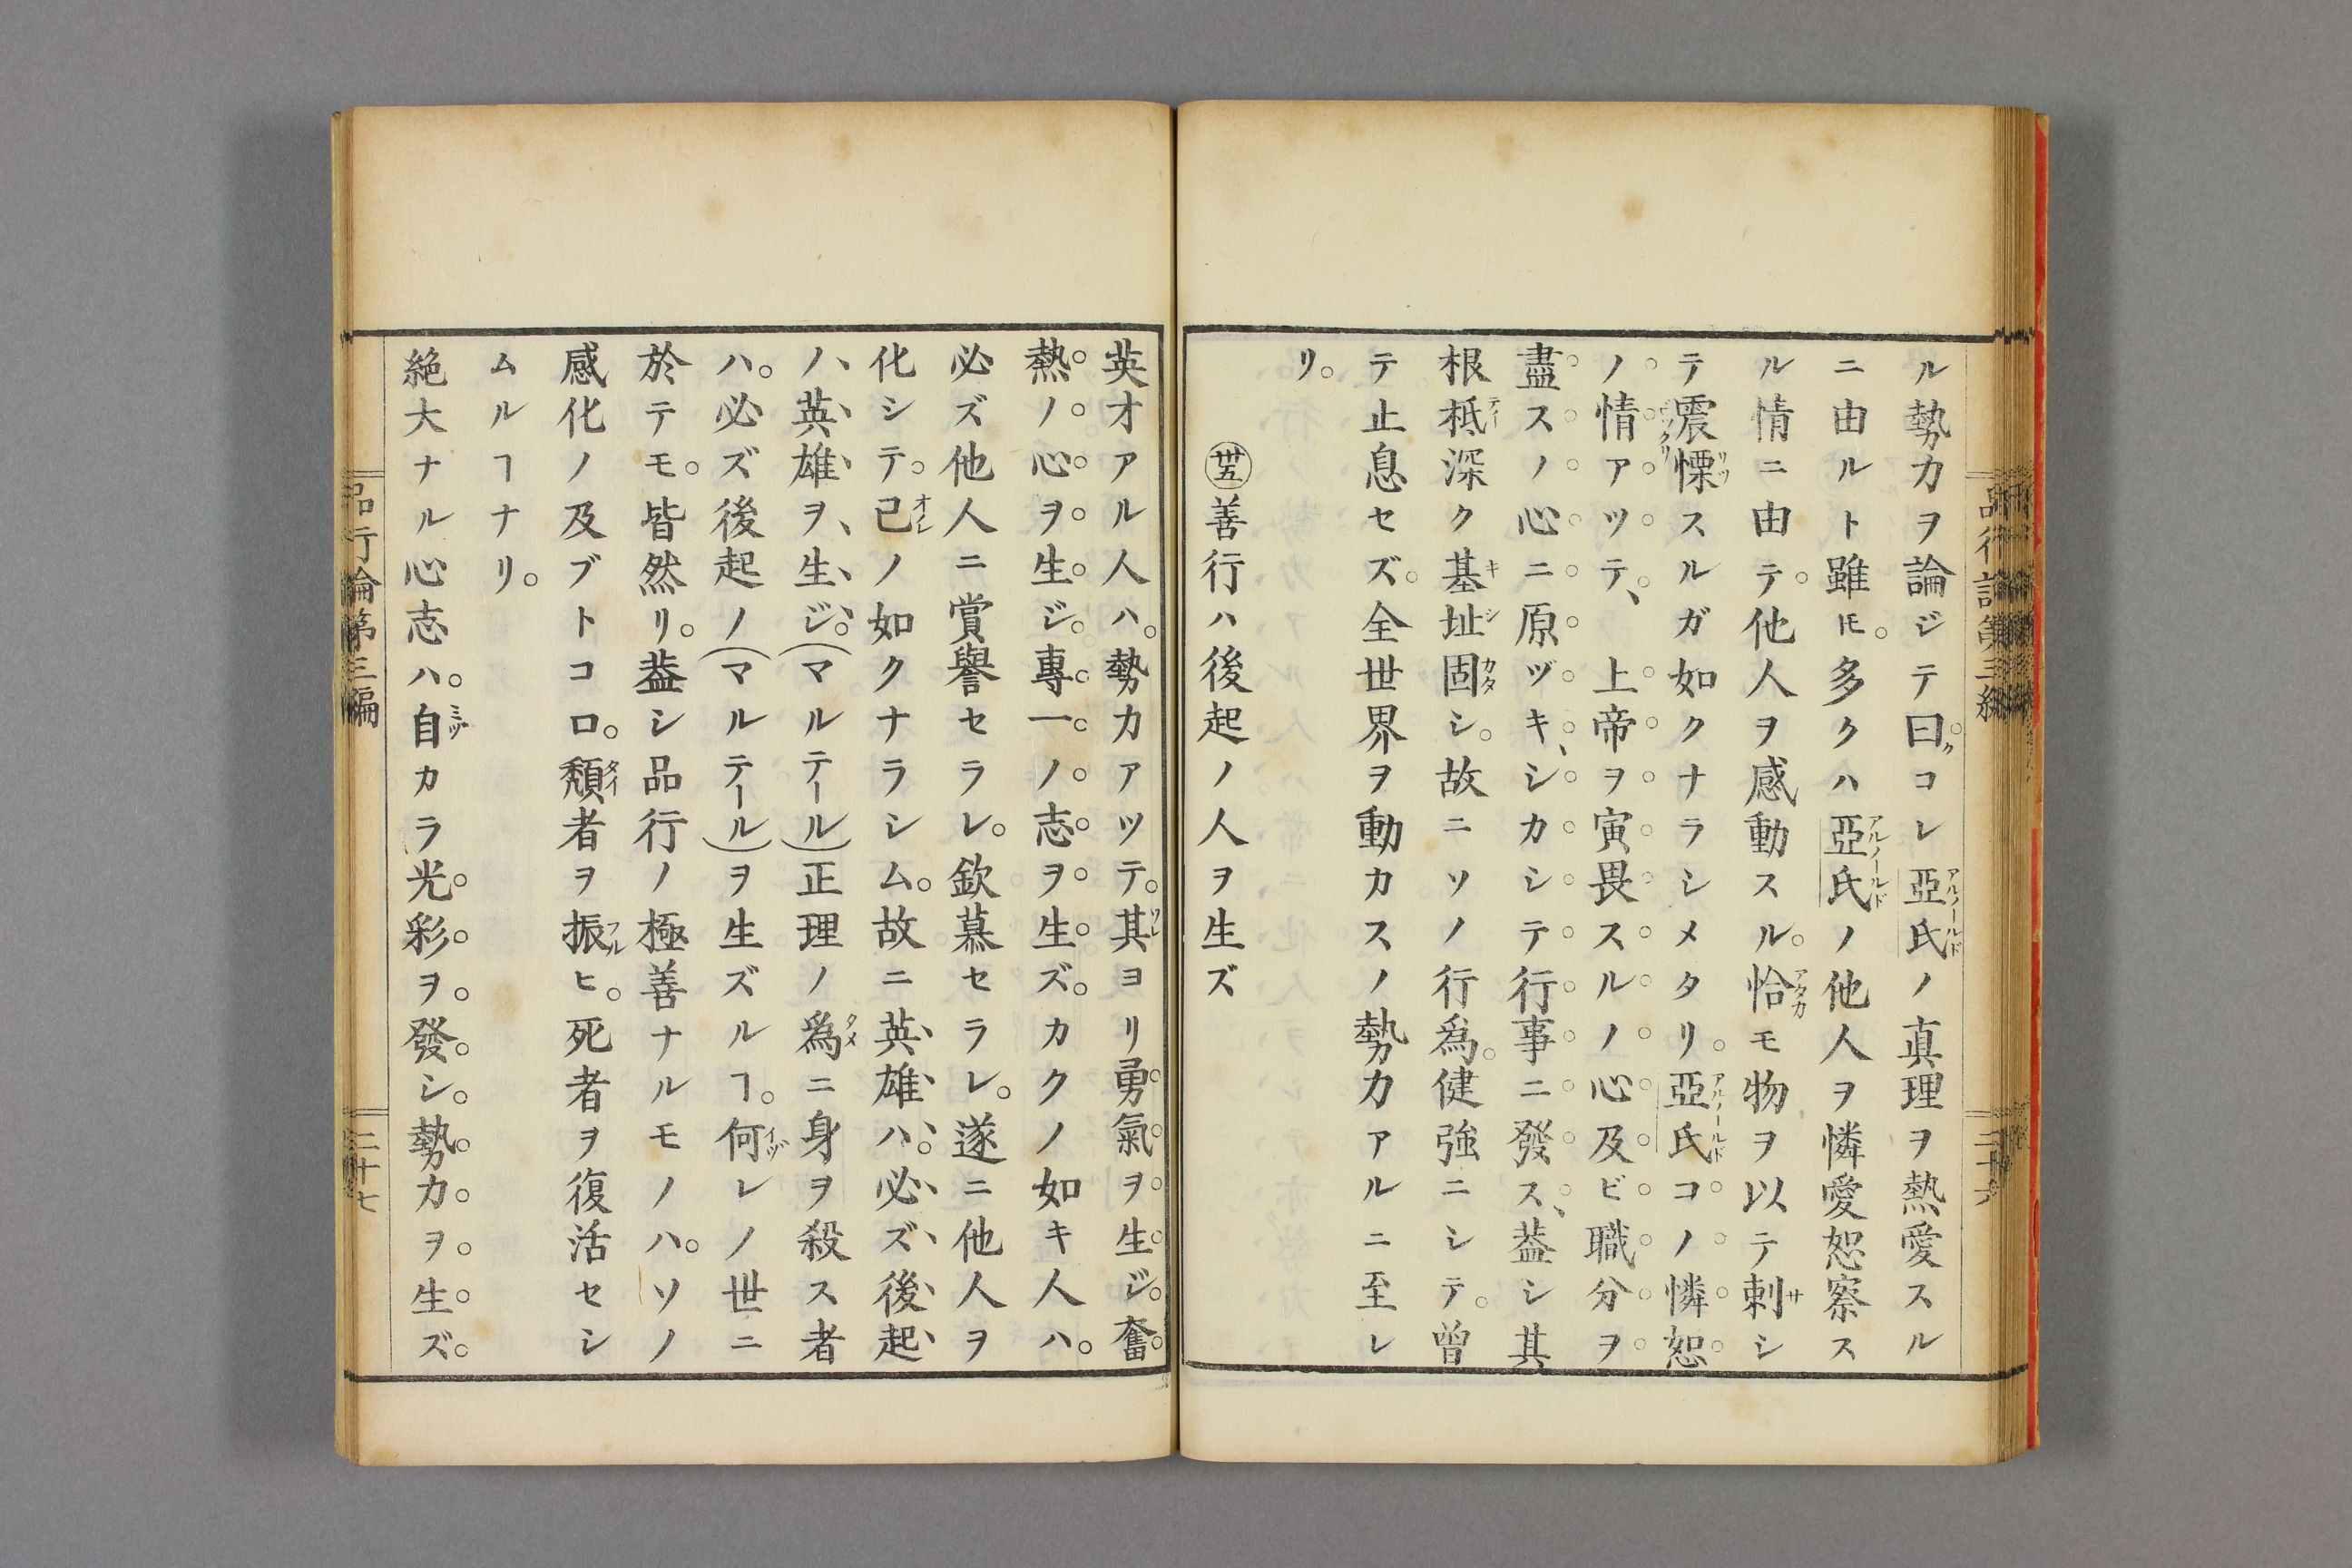 ル勢力ヲ論ジテ曰ク。コレ亞氏ノ真理ヲ熱愛スル
ニ由ルト雖𪜈。多クハ亞氏ノ他人ヲ憐愛恕察ス
ル情ニ由テ。他人ヲ感動スル。恰モ物ヲ以テ刺シ
テ震慄スルガ如クナラシメタリ。亞氏コノ憐恕
ノ情アツテ、上帝ヲ寅畏スルノ心及ビ職分ヲ
盡スノ心ニ原ヅキ、シカシテ行事ニ發ス、葢シ其
根柢深ク基址固シ。故ニソノ行爲。健強ニシテ。曾
テ止息セズ。全世界ヲ動カスノ勢力アルニ至レ
リ。
㊲善行ハ後起ノ人ヲ生ズ
英才アル人ハ。勢力アツテ。其ヨリ勇氣ヲ生ジ。奮
熱ノ心ヲ生ジ。專一ノ志ヲ生ズ。カクノ如キ人ハ。
必ズ他人ニ賞譽セラレ。欽慕セラレ。遂ニ他人ヲ
化シテ。己ノ如クナラシム。故ニ英雄ハ。必ズ後起
ノ英雄ヲ生ジ。(マルテール)正理ノ爲ニ身ヲ殺ス者
ハ。必ズ後起ノ(マルテール)ヲ生ズルヿ。何レノ世ニ
於テモ。皆然リ。葢シ品行ノ極善ナルモノハ。ソノ
感化ノ及ブトコロ。頽者ヲ振ヒ。死者ヲ復活セシ
ムルヿナリ。
絶大ナル心志ハ。自カラ光彩ヲ發シ。勢力ヲ生ズ。
品行論第三編
二十七